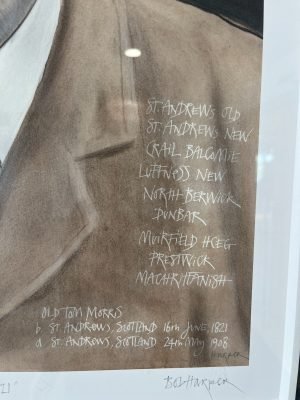 ST. ANDREWS OLD
ST. ANDREWS NEW
CRAIL BALCOMIE
LUFFNESS NEW
NORTH BERWICK
DUNBAR
MUIRFIELD HCEG
PRESTWICK
MACHRIHANISH
OLD TOM MORRIS
b. ST. ANDREWS, SCOTLAND 16th JUNE, 1821
d. ST. ANDREWS, SCOTLAND 24th MAY 1908
HARMER
21"
Bob Harmer